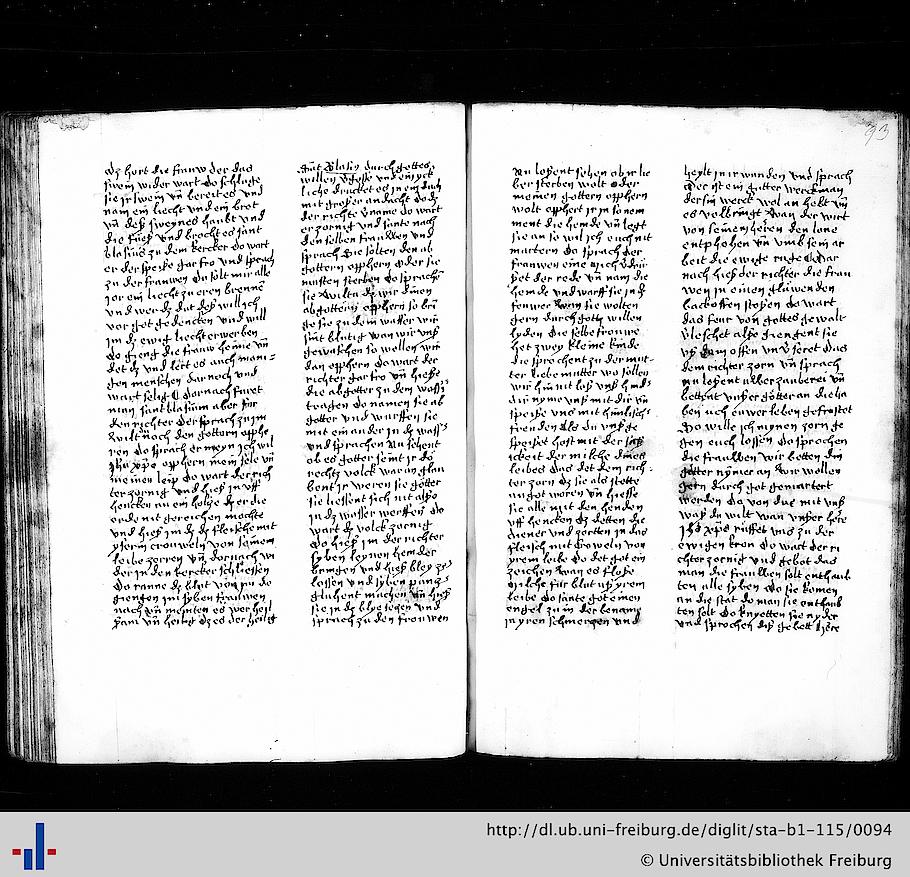 dz hort die frauw der das
swein wider wart do schlug
sie jr swein vn bereit es vnd
nam ein liecht vnd ein brot
vn deß sweynes haubt vnd
die füeß vnd brocht es sant
blasius zu dem kercker do wart
er der speise gar fro vnd sprach
zu der frauwen du solt mir alle
jor ein liecht zu eren brennen
vnd wer dz dut deß will ich
vor got gedencken vnd will
im dz ewig liecht erwerben
do gieng die frauw heime vn
det dz vnd lert es auch mani=
gen menschen dar noch vnd
wart selig dornach furet
man sant blasium aber für
den richter der sprach zu im
wiltu noch den gottern opffe
ren do sprach er neyn ich wil
jhu xpo opffern mein sele vn
meinen leip do wart der rich
ter zornig vnd hieß in vff
hencken an ein holtz dz er die
erde nit gereichen mochte
vnd hieß im dz fleische mit
ysern crouweln von seinem
leibe zerren vn dornach wi
der in den kercker schliessen
do ranne dz blut von im do
giengen im syben frauwen
nach vn meinten es wer heil
sam vn heilig dz es der heilig
sant Blasius durch gottes
willen vergosse vnd
liche drucket es in ein duch
mit großer andacht do dz
der richter vername do wart
er zornig vnd sante nach
den selben frauwen vnd
sprach sie solten den ab
gottern opffern oder sie
musten sterben do sprach
sie wiltu dz wir dinen
abgottern opffern so brin
ge sie zu dem wasser wir
sint blutig wan wir vnß
gewaschen so wollen wir
dan opffern do wart der
richter gar fro vn hieße
die abgotter zu dem wasser
tragen do namen sie ab
gotter vnd wurffen sie
mit ein ander in dz wasser
vnd sprachen nu sehent
ob es gotter seint jr do
rechtz volck war an glau
bent jr weren sie gotter
sie liessent sich nit also
in dz wasser werffen do
wart dz volck zornig
do hieß im der richter
syben leynen hemder
bringen vnd hieß bley ze
lossen vnd syben pantz
gluhent machen vn hieß
sie in dz blye setzen vnd
sprach zu den frouwen
Nu lossent sehen ob ir lie
ber sterben wolt oder
meinen gottern opffern
wolt opffert jr in so nem
ment die hemde vn legt
sie an so wil ich euch nit
martern do sprach der
frauwen eine mich
det der rede vn nam die
hemde vnd warff sie in dz
fewer wan sie wolten
gern durch gotz willen
lyden Die selbe frouwe
het zwey kleine kinde
die sprochent zu der mut=
ter liebe mutter wo sollen
wir hin nit loß vnß hinder
dir nyme vnß mit dir vn
speise vns mit himlisch
freuden als du vnß ge
speiset host mit der süß
ickeit der milche dines
leibes das det dem rich=
ter zorn dz sie als stette
an got woren vn hiesse
sie alle mit den henden
vff hencken dz detten die
diener vnd zorten in das
fleisch mit croweln von
yrem leibe do det got ein
zeichen wan es flosse
milche für blut vß yrem
leibe do sante got einen
engel zu in der bename
in yren schmerczen vnd
heylt in ir wunden vnd sprach
Der ist ein gutter werckman
der sin werck wol an hebt vn
es volbringt wan der wirt
von seinem herren den lone
entpfohen vn vmb sein ar
beit die ewige ruge Dar
nach hieß der richter die frau
wen in einen glüwenden
backoffen stoßen do wart
das feur von gottes gewalt
verleschet also giengent sie
vß dem offen vnuerseret das
dem richter zorn vn sprach
nu lossent uwer zauberei vn
bettent vnßer götter an die ha
ben uch euwer leben gefristet
so wille ich mynen zorn ge
gen euch lossen do sprochen
die frauwen wir betten din
götter nymer an wir wollen
gern durch got gemartert
werden do von due mit vnß
waß du wilt wan vnßer here
Jhs xps ruffet vns zu der
ewigen kron do wart der ri
chter zornig vnd gebot das
man die frauwen solt enthaub
ten alle syben do sie komen
an die stat do man sie enthaub
ten solt do knyetten sie nyder
vnd sprochen diß gebett here
93
http://dl.ub.uni-freiburg.de/diglit/sta-b1-115/0094
© Universitätsbibliothek Freiburg